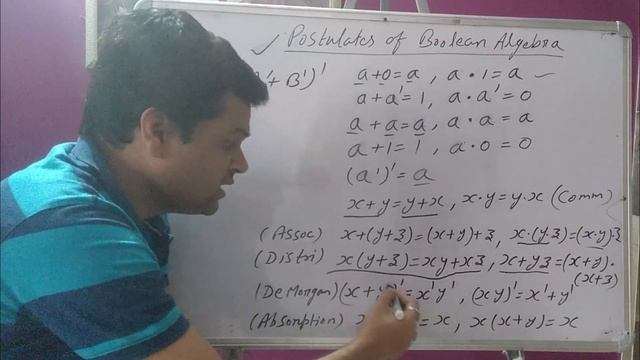 ✓ Postulates of Boolean Algebra
'+ B')' a+0=a, a·1=a ✓
a+a'=1, a·a'=0
a+a=a, a·a=a
a+1=1, a·0=0
(a')'=a
x+y=y+x, x·y=y·x (Comm)
(Assoc) x+(y+3)=(x+y)+3, x·(y·3)=(x·y)·3
(Distri) x(y+3)=xy+x3, x+y3=(x+y)·
(x+3)
(De Morgan) (x+ )'=x'y', (xy)'=x'+y'
(Absorption) x =x, x(x+y)=x